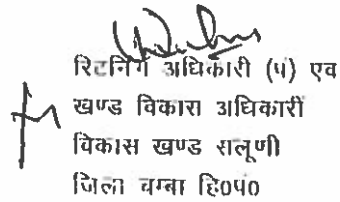 रिटर्निंग अधिकारी (पं) एवं
खण्ड विकास अधिकारी
विकास खण्ड सलूणी
जिला चम्बा हि०प्र०